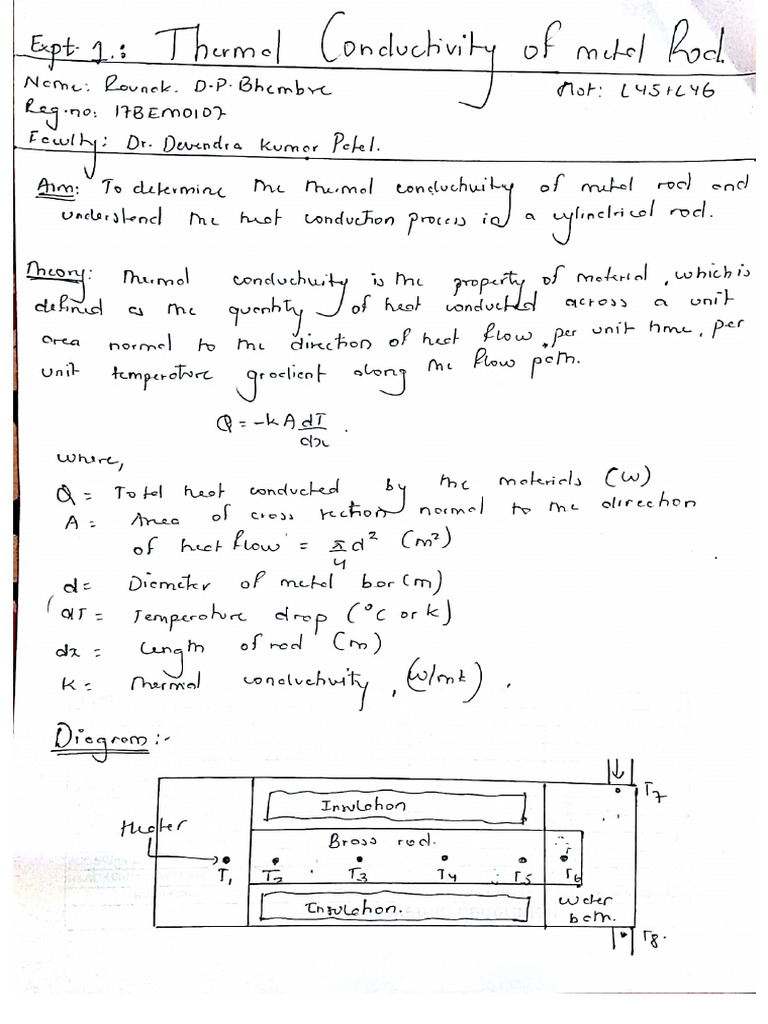 Expt. 1.: Thermal Conductivity of metal Rod.
Name: Rounak. D.P. Bhembre
Slot: L45+L46
Reg.no: 17BEM0107
Faculty: Dr. Devendra Kumar Patel.
Aim: To determine the thermal conductivity of metal rod and
understand the heat conduction process in a cylindrical rod.
Theory: Thermal conductivity is the property of material, which is
defined as the quantity of heat conducted across a unit
area normal to the direction of heat flow, per unit time, per
unit temperature gradient along the flow path.
Q = -kA dT/dx.
where,
Q = Total heat conducted by the materials (W)
A = Area of cross section normal to the direction
of heat flow = π/4 d² (m²)
d = Diameter of metal bar (m)
dT = Temperature drop (°C or k)
dx = Length of rod (m)
K = Thermal conductivity, (W/mk).
Diagram:-
T7
Insulation
Heater
Brass rod.
T1 T2 T3 T4 T5 T6
Insulation.
water
bath.
T8.